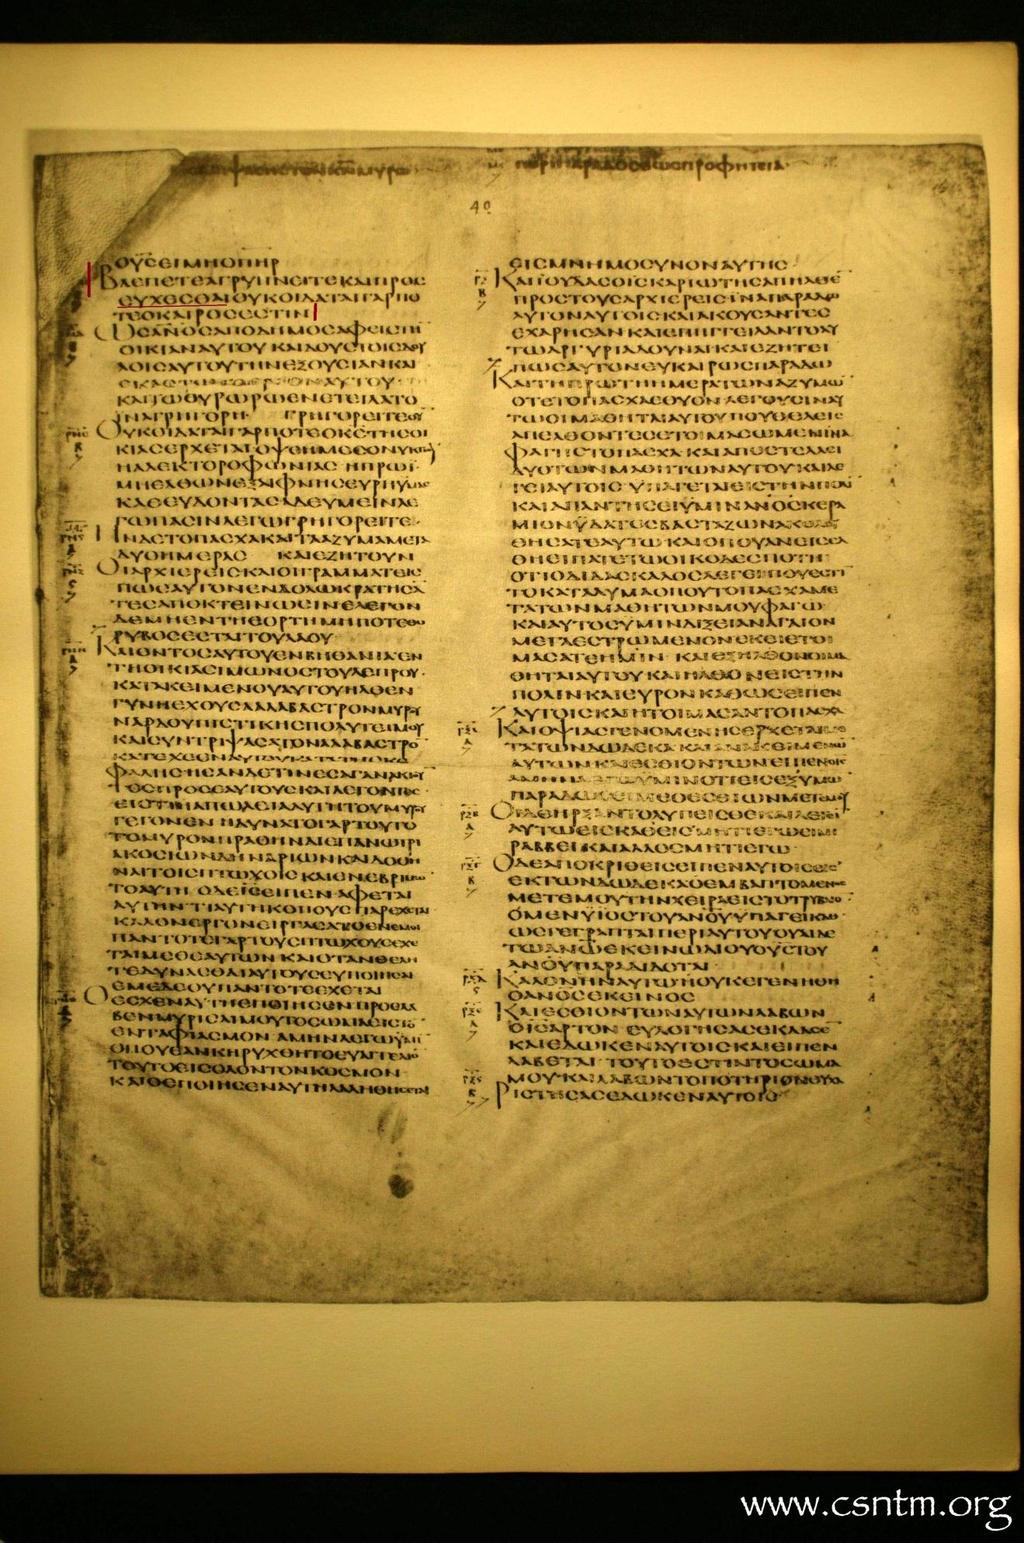 ΟΥϹΕΙΜΗΟΠΗΡ
ΒΛΕΠΕΤΕΑΓΡΥΠΝΕΙΤΕΚΑΙΠΡΟϹ
ΕΥΧΕϹΘΑΙΟΥΚΟΙΔΑΤΑΙΓΑΡΠΟ
ΤΕΟΚΑΙΡΟϹΕϹΤΙΝ
ΩϹΑΝΟϹΑΠΟΔΗΜΟϹΑΦΕΙϹΤΗ
ΟΙΚΙΑΝΑΥΤΟΥΚΑΙΔΟΥϹΤΟΙϹΔΟΥ
ΛΟΙϹΑΥΤΟΥΤΗΝΕΞΟΥϹΙΑΝΚΑΙ
ΕΚΑϹΤΩΤΟΕΡΓΟΝΑΥΤΟΥ
ΚΑΙΤΩΘΥΡΩΡΩΕΝΕΤΕΙΛΑΤΟ
ΙΝΑΓΡΗΓΟΡΗ ΓΡΗΓΟΡΕΙΤΕΟΥ
ΟΥΚΟΙΔΑΤΑΙΓΑΡΠΟΤΕΟΚΣΤΗϹΟΙ
ΚΙΑϹΕΡΧΕΤΑΙΟΨΕΗΜΕϹΟΝΥΚΤΙΟΥ
ΗΑΛΕΚΤΟΡΟΦΩΝΙΑϹ ΗΠΡΩΙ
ΜΗΕΛΘΩΝΕΞΑΙΦΝΗϹΕΥΡΗΥΜΑϹ
ΚΑΘΕΥΔΟΝΤΑϹΑΛΕΥΜΕΙΝΛΕ
ΓΩΠΑϹΙΝΛΕΓΩΓΡΗΓΟΡΕΙΤΕ
ΗΝΔΕΤΟΠΑϹΧΑΚΑΙΤΑΑΖΥΜΑΜΕΤΑ
ΔΥΟΗΜΕΡΑϹ ΚΑΙΕΖΗΤΟΥΝ
ΟΙΑΡΧΙΕΡΕΙϹΚΑΙΟΙΓΡΑΜΜΑΤΕΙϹ
ΠΩϹΑΥΤΟΝΕΝΔΟΛΩΚΡΑΤΗϹΑ
ΤΕϹΑΠΟΚΤΕΙΝΩϹΙΝΕΛΕΓΟΝ
ΔΕΜΗΕΝΤΗΕΟΡΤΗΜΗΠΟΤΕΘΟ
ΡΥΒΟϹΕϹΤΑΙΤΟΥΛΑΟΥ
ΚΑΙΟΝΤΟϹΑΥΤΟΥΕΝΒΗΘΑΝΙΑΕΝ
ΤΗΟΙΚΙΑϹΙΜΩΝΟϹΤΟΥΛΕΠΡΟΥ
ΚΑΤΑΚΕΙΜΕΝΟΥΑΥΤΟΥΗΛΘΕΝ
ΓΥΝΗΕΧΟΥϹΑΑΛΑΒΑϹΤΡΟΝΜΥΡΟΥ
ΝΑΡΔΟΥΠΙϹΤΙΚΗϹΠΟΛΥΤΕΛΟΥ
ΚΑΙϹΥΝΤΡΙΨΑϹΑΤΟΝΑΛΑΒΑϹΤΡΟ
ΚΑΤΕΧΕΕΝΑΥΤΟΥΚΑΤΑΤΗϹΚΕ
ΦΑΛΗϹΗϹΑΝΔΕΤΙΝΕϹΑΓΑΝΑΚΤΟΥ
ΤΕϹΠΡΟϹΕΑΥΤΟΥϹΚΑΙΛΕΓΟΝΤΕϹ
ΕΙϹΤΙΗΑΠΩΛΕΙΑΑΥΤΗΤΟΥΜΥΡΟΥ
ΓΕΓΟΝΕΝΗΔΥΝΑΤΟΓΑΡΤΟΥΤΟ
ΤΟΜΥΡΟΝΠΡΑΘΗΝΑΙΕΠΑΝΩΤΡΙ
ΑΚΟϹΙΩΝΔΗΝΑΡΙΩΝΚΑΙΔΟΘΗ
ΝΑΙΤΟΙϹΠΤΩΧΟΙϹΚΑΙΕΝΕΒΡΙΜΩ
ΤΟΑΥΤΗ ΟΔΕΙϹΕΙΠΕΝΑΦΕΤΑΙ
ΑΥΤΗΝΤΙΑΥΤΗΚΟΠΟΥϹΠΑΡΕΧΕΤΑΙ
ΚΑΛΟΝΕΡΓΟΝΕΙΡΓΑϹΑΤΟΕΝΕΜΟΙ
ΠΑΝΤΟΤΕΓΑΡΤΟΥϹΠΤΩΧΟΥϹΕΧΕ
ΤΑΙΜΕΘΕΑΥΤΩΝΚΑΙΟΤΑΝΘΕΛΗ
ΤΕΔΥΝΑϹΘΑΙΑΥΤΟΥϹΕΥΠΟΙΗϹΑΙ
ΕΜΕΔΕΟΥΠΑΝΤΟΤΕΕΧΕΤΑΙ
ΟΕϹΧΕΝΑΥΤΗΕΠΟΙΗϹΕΝΠΡΟΕΛΑ
ΒΕΝΜΥΡΙϹΑΙΜΟΥΤΟϹΩΜΑΕΙϹΤΟ
ΕΝΤΑΦΙΑϹΜΟΝΑΜΗΝΛΕΓΩΥΜΙ
ΟΠΟΥΕΑΝΚΗΡΥΧΘΗΤΟΕΥΑΓΓΕΛΙΟ
ΤΟΥΤΟΕΙϹΟΛΟΝΤΟΝΚΟϹΜΟΝ
ΚΑΙΟΕΠΟΙΗϹΕΝΑΥΤΗΛΑΛΗΘΗϹΕΤΑΙ
ΠΕΡΙΠΑΡΑΔΟϹΕΩϹΠΡΟΦΗΤΕΙΑ
40
ΕΙϹΜΝΗΜΟϹΥΝΟΝΑΥΤΗϹ
ΚΑΙΙΟΥΔΑϹΟΙϹΚΑΡΙΩΤΗϹΑΠΗΛΘΕ
ΠΡΟϹΤΟΥϹΑΡΧΙΕΡΕΙϹΙΝΑΠΑΡΑΔΩ
ΑΥΤΟΝΑΥΤΟΙϹΚΑΙΑΚΟΥϹΑΝΤΕϹ
ΕΧΑΡΗϹΑΝΚΑΙΕΠΗΓΓΕΙΛΑΝΤΟΑΥ
ΤΩΑΡΓΥΡΙΑΔΟΥΝΑΙΚΑΙΕΖΗΤΕΙ
ΠΩϹΑΥΤΟΝΕΥΚΑΙΡΩϹΠΑΡΑΔΩ
ΚΑΙΤΗΠΡΩΤΗΗΜΕΡΑΤΩΝΑΖΥΜΩ
ΟΤΕΤΟΠΑϹΧΑΕΘΥΟΝΛΕΓΟΥϹΙΝΑΥ
ΤΩΟΙΜΑΘΗΤΑΙΑΥΤΟΥΠΟΥΘΕΛΕΙϹ
ΑΠΕΛΘΟΝΤΕϹΕΤΟΙΜΑϹΩΜΕΝΙΝΑ
ΦΑΓΗϹΤΟΠΑϹΧΑΚΑΙΑΠΟϹΤΕΛΛΕΙ
ΔΥΟΤΩΝΜΑΘΗΤΩΝΑΥΤΟΥΚΑΙΛΕ
ΓΕΙΑΥΤΟΙϹΥΠΑΓΕΤΑΙΕΙϹΤΗΝΠΟΛΙ
ΚΑΙΑΠΑΝΤΗϹΕΙΥΜΙΝΑΝΟϹΚΕΡΑ
ΜΙΟΝΥΔΑΤΟϹΒΑϹΤΑΖΩΝΑΚΟΛΟΥ
ΘΗϹΑΤΕΑΥΤΩΚΑΙΟΠΟΥΑΝΕΙϹΕΛ
ΘΗΕΙΠΑΤΕΤΩΟΙΚΟΔΕϹΠΟΤΗ
ΟΤΙΟΔΙΔΑϹΚΑΛΟϹΛΕΓΕΙΠΟΥΕϹΤΙ
ΤΟΚΑΤΑΛΥΜΑΟΠΟΥΤΟΠΑϹΧΑΜΕ
ΤΑΤΩΝΜΑΘΗΤΩΝΜΟΥΦΑΓΩ
ΚΑΙΑΥΤΟϹΥΜΙΝΔΙΞΕΙΑΝΑΓΑΙΟΝ
ΜΕΓΑΕϹΤΡΩΜΕΝΟΝΕΚΕΙΕΤΟΙ
ΜΑϹΑΤΕΗΜΙΝ ΚΑΙΕΞΗΛΘΟΝΟΙΜΑ
ΘΗΤΑΙΑΥΤΟΥΚΑΙΗΛΘΟΝΕΙϹΤΗΝ
ΠΟΛΙΝΚΑΙΕΥΡΟΝΚΑΘΩϹΕΙΠΕΝ
ΑΥΤΟΙϹΚΑΙΗΤΟΙΜΑϹΑΝΤΟΠΑϹΧΑ
ΚΑΙΟΨΙΑϹΓΕΝΟΜΕΝΗϹΕΡΧΕΤΑΙΜΕ
ΤΑΤΩΝΔΩΔΕΚΑΚΑΙΑΝΑΚΕΙΜΕΝΩ
ΑΥΤΩΝΚΑΙΕϹΘΙΟΝΤΩΝΕΙΠΕΝΟΙϹ
ΑΜΗΝΛΕΓΩΥΜΙΝΟΤΙΕΙϹΕΞΥΜΩ
ΠΑΡΑΔΩϹΕΙΜΕΟΕϹΘΙΩΝΜΕΤΕΜΟΥ
ΟΙΔΕΗΡΞΑΝΤΟΛΥΠΕΙϹΘΕΚΑΙΛΕΓΕΙ
ΑΥΤΩΕΙϹΚΑΘΕΙϹΜΗΤΙΕΓΩΕΙΜΙ
ΡΑΒΒΕΙΚΑΙΑΛΛΟϹΜΗΤΙΕΓΩ
ΟΔΕΑΠΟΚΡΙΘΕΙϹΕΙΠΕΝΑΥΤΟΙϹΕΙϹ
ΕΚΤΩΝΔΩΔΕΚΑΟΕΜΒΑΠΤΟΜΕΝΟϹ
ΜΕΤΕΜΟΥΤΗΝΧΕΙΡΑΕΙϹΤΟΤΡΥΒΛΙΟ
ΟΜΕΝΥΙΟϹΤΟΥΑΝΟΥΥΠΑΓΕΙΚΑΘ
ΩϹΓΕΓΡΑΠΤΑΙΠΕΡΙΑΥΤΟΥΟΥΑΙΔΕ
ΤΩΑΝΩΕΚΕΙΝΩΔΙΟΥΟΥϹΤΟΥ
ΑΝΟΥΠΑΡΑΔΙΔΟΤΑΙ
ΚΑΛΟΝΗΝΑΥΤΩΕΙΟΥΚΕΓΕΝΝΗΘΗ
ΟΑΝΟϹΕΚΕΙΝΟϹ
ΚΑΙΕϹΘΙΟΝΤΩΝΑΥΤΩΝΛΑΒΩΝ
ΟΙϹΑΡΤΟΝΕΥΛΟΓΗϹΑϹΕΚΛΑϹΕ
ΚΑΙΕΔΩΚΕΝΑΥΤΟΙϹΚΑΙΕΙΠΕΝ
ΛΑΒΕΤΑΙ ΤΟΥΤΟΕϹΤΙΝΤΟϹΩΜΑ
ΜΟΥΚΑΙΛΑΒΩΝΤΟΠΟΤΗΡΙΟΝΕΥΧΑ
ΡΙϹΤΗϹΑϹΕΔΩΚΕΝΑΥΤΟΙϹ
www.csntm.org